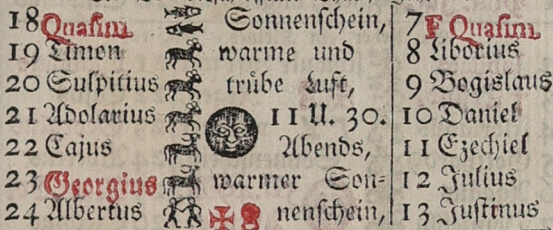 18 Quasim Sonnenschein, 7 F Quasim
19 Timon warme und 8 Liborius
20 Sulpitius trübe Luft, 9 Bogislaus
21 Adolarius 11 U. 30. 10 Daniel
22 Cajus Abends, 11 Ezechiel
23 Georgius warmer Son- 12 Julius
24 Albertus nenschein, 13 Justinus